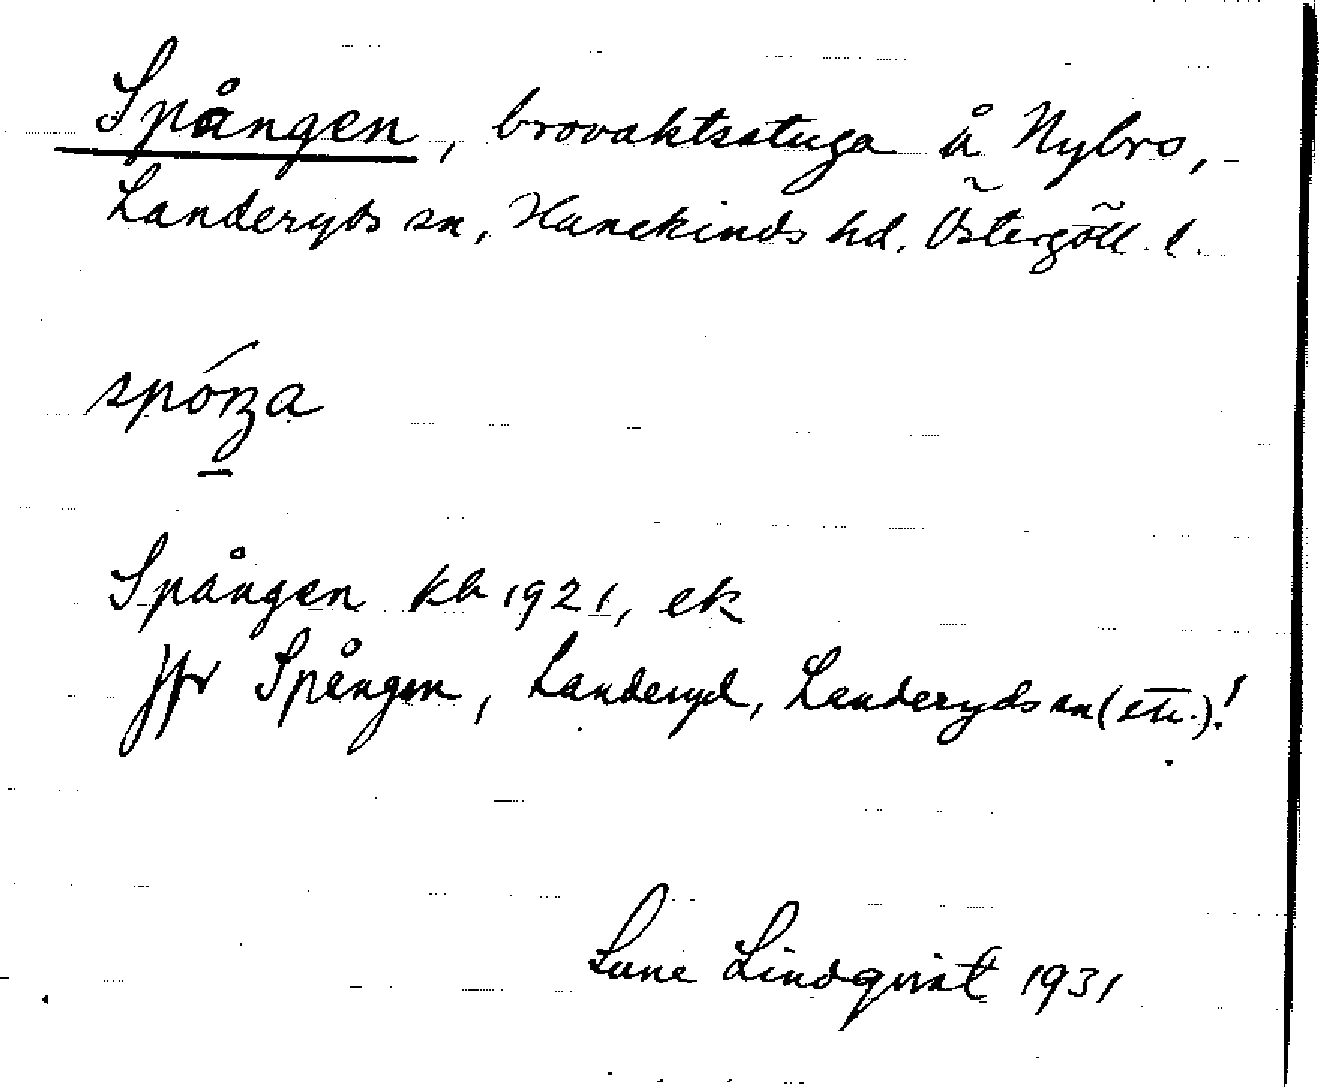 Spången, brovaktsstuga å Nybro,
Landeryds sn, Hanekinds hd. Östergötl. l.
Spången kb 1921, ek
Jfr Spången, Landeryd, Landeryds sn (etc.)!
Sune Lindqvist 1931